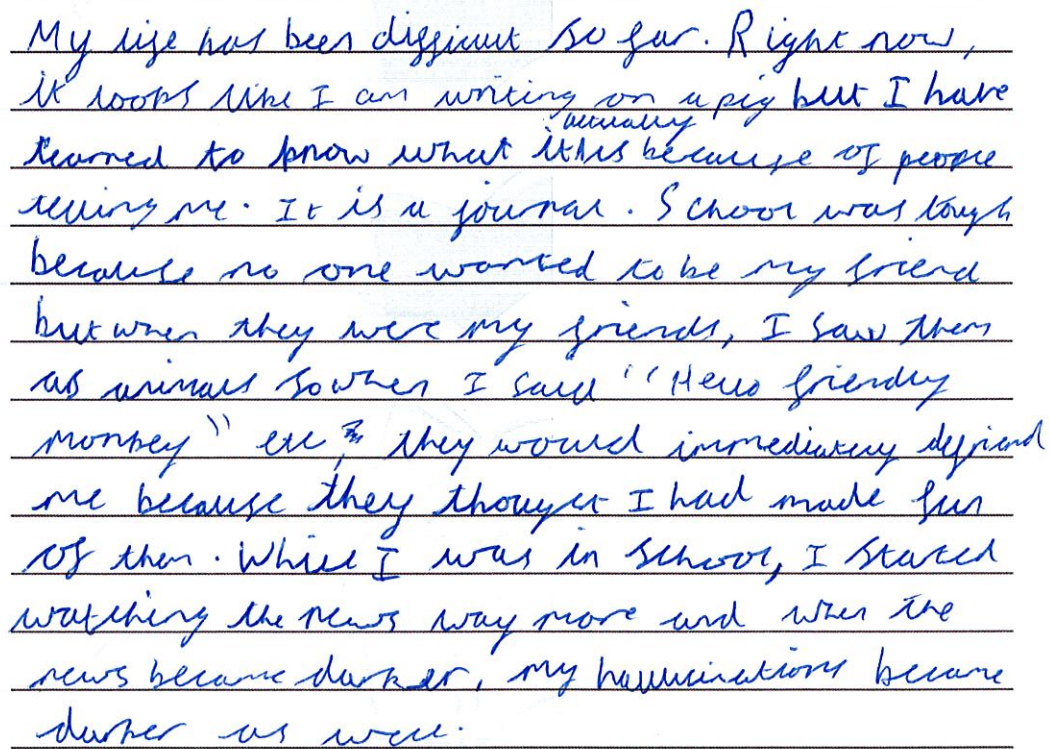 My life has been difficult so far. Right now,
it looks like I am writing on a pig but I have
learned to know what it actually is because of people
telling me. It is a journal. School was tough
because no one wanted to be my friend
but when they were my friends, I saw them
as animals so when I said "Hello friendly
monkey" etc, they would immediately defriend
me because they thought I had made fun
of them. While I was in school, I started
watching the news way more and when the
news became darker, my hallucinations became
darker as well.